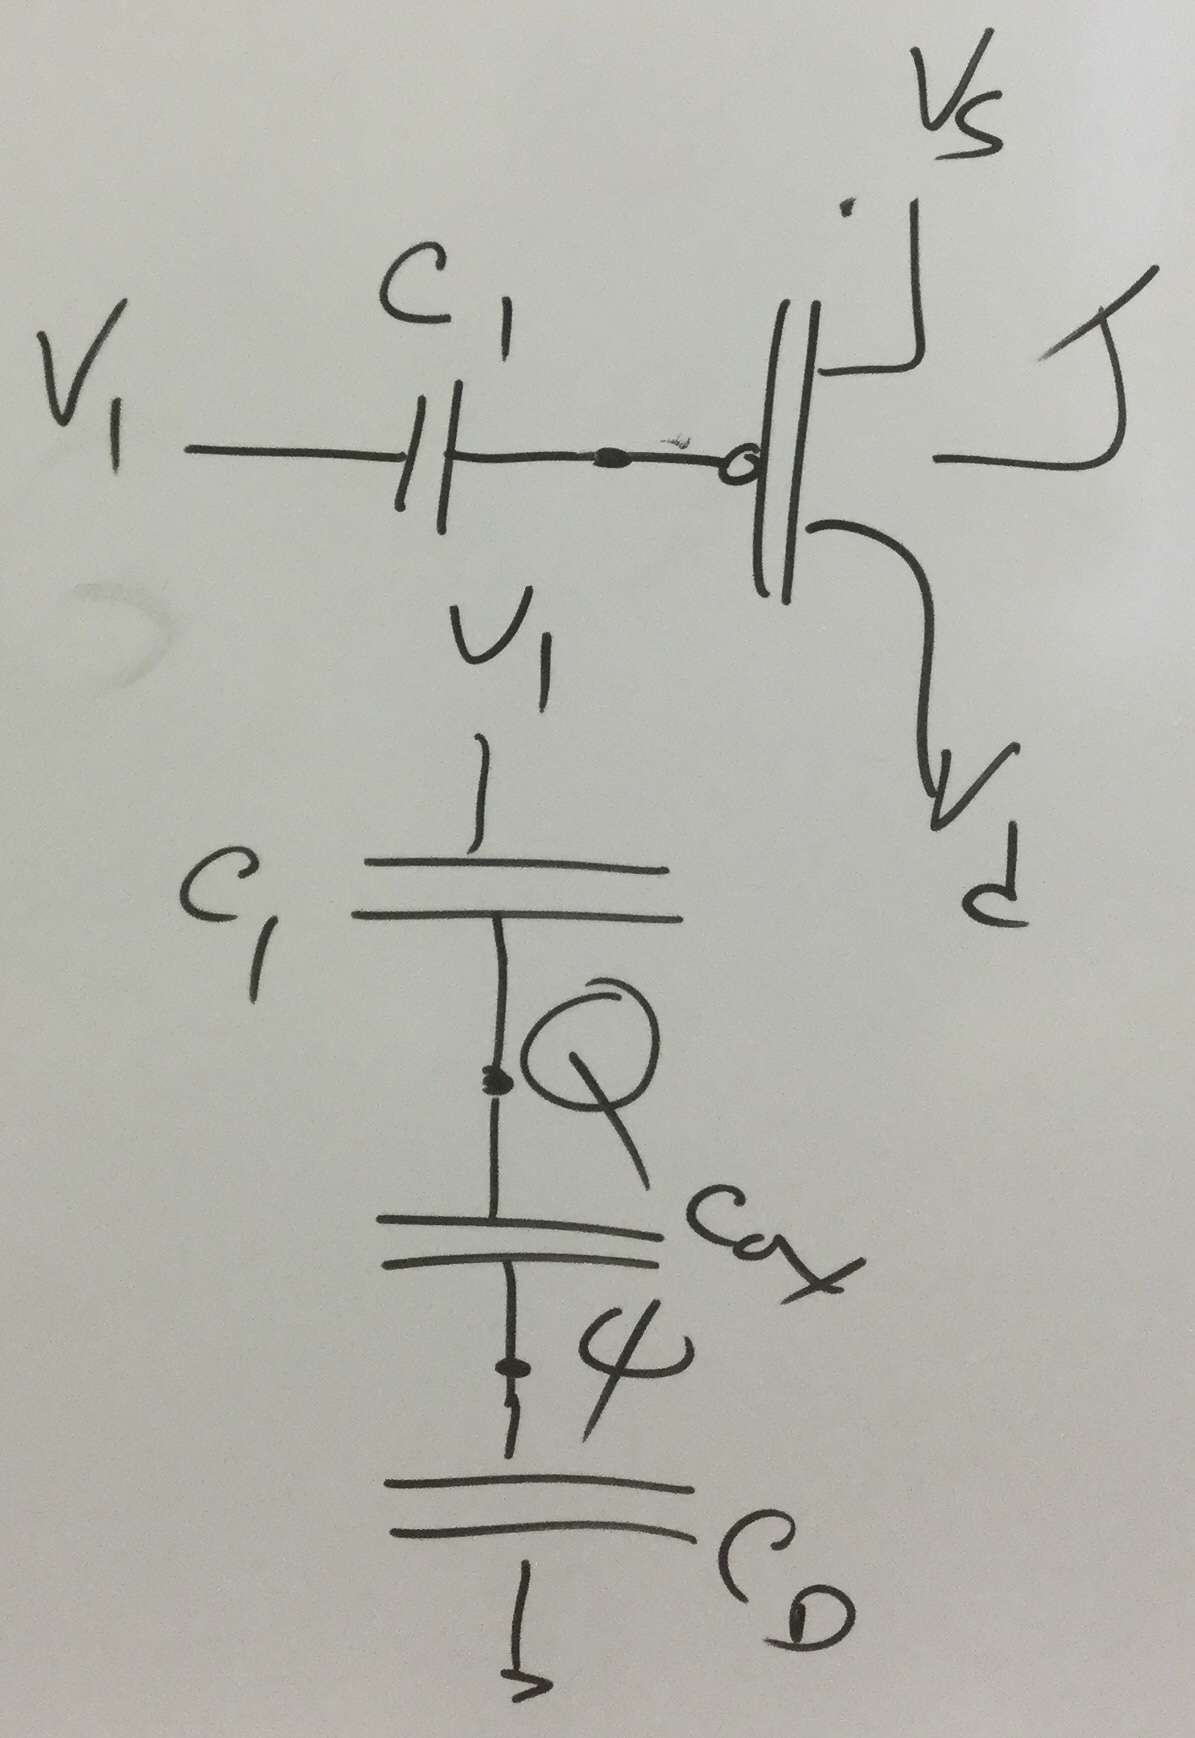 Vs
C1
V1
V1
Vd
C1
Q
Cox
ψ
CD